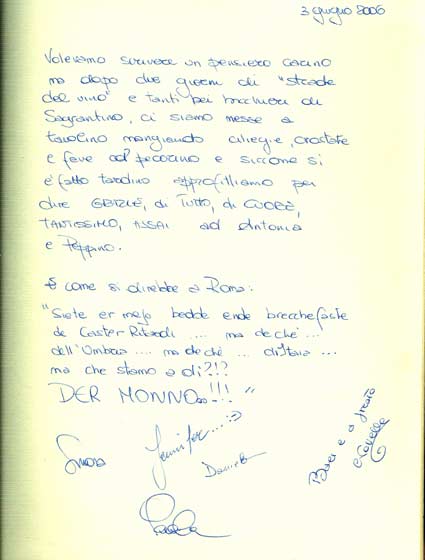 3 giugno 2006
Volevamo scrivere un pensiero carino
ma dopo due giorni di "strade
del vino" e tanti bei bicchieri di
Sagrantino, ci siamo messe a
tavolino mangiando ciliegie, crostate
e fave col pecorino e siccome si
è fatto tardino approfittiamo per
dire GRAZIE, di TUTTO, di CUORE,
TANTISSIMO, ASSAI ad Antonia
e Peppino.
E come si direbbe a Roma:
"Siete er mejo bedde ende
de Caster Ritardi .... ma de chè
dell'Umbria .... ma de chè ... d'Itaia ...
ma che stamo a dì?!?
DER MONNO!!! "
Simona
Jennifer...
Daniela
Paola
Baci e a presto